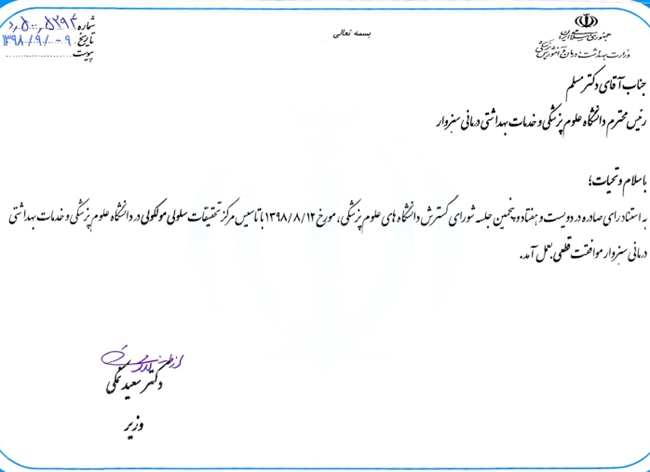 بسمه تعالی
جمهوری اسلامی ایران
وزارت بهداشت، درمان و آموزش پزشکی
شماره
تاریخ ۱۳۹۸/۹/۰۹
پیوست
جناب آقای دکتر مسلم
رئیس محترم دانشگاه علوم پزشکی و خدمات بهداشتی درمانی سبزوار
با سلام و تحیات؛
به استناد رای صادره در دویست و هفتاد و پنجمین جلسه شورای گسترش دانشگاه های علوم پزشکی، مورخ ۱۳۹۸/۸/۱۲ با تاسیس مرکز تحقیقات سلولی مولکولی در دانشگاه علوم پزشکی و خدمات بهداشتی
درمانی سبزوار موافقت قطعی بعمل آمد.
از طرف
دکتر سعید نمکی
وزیر